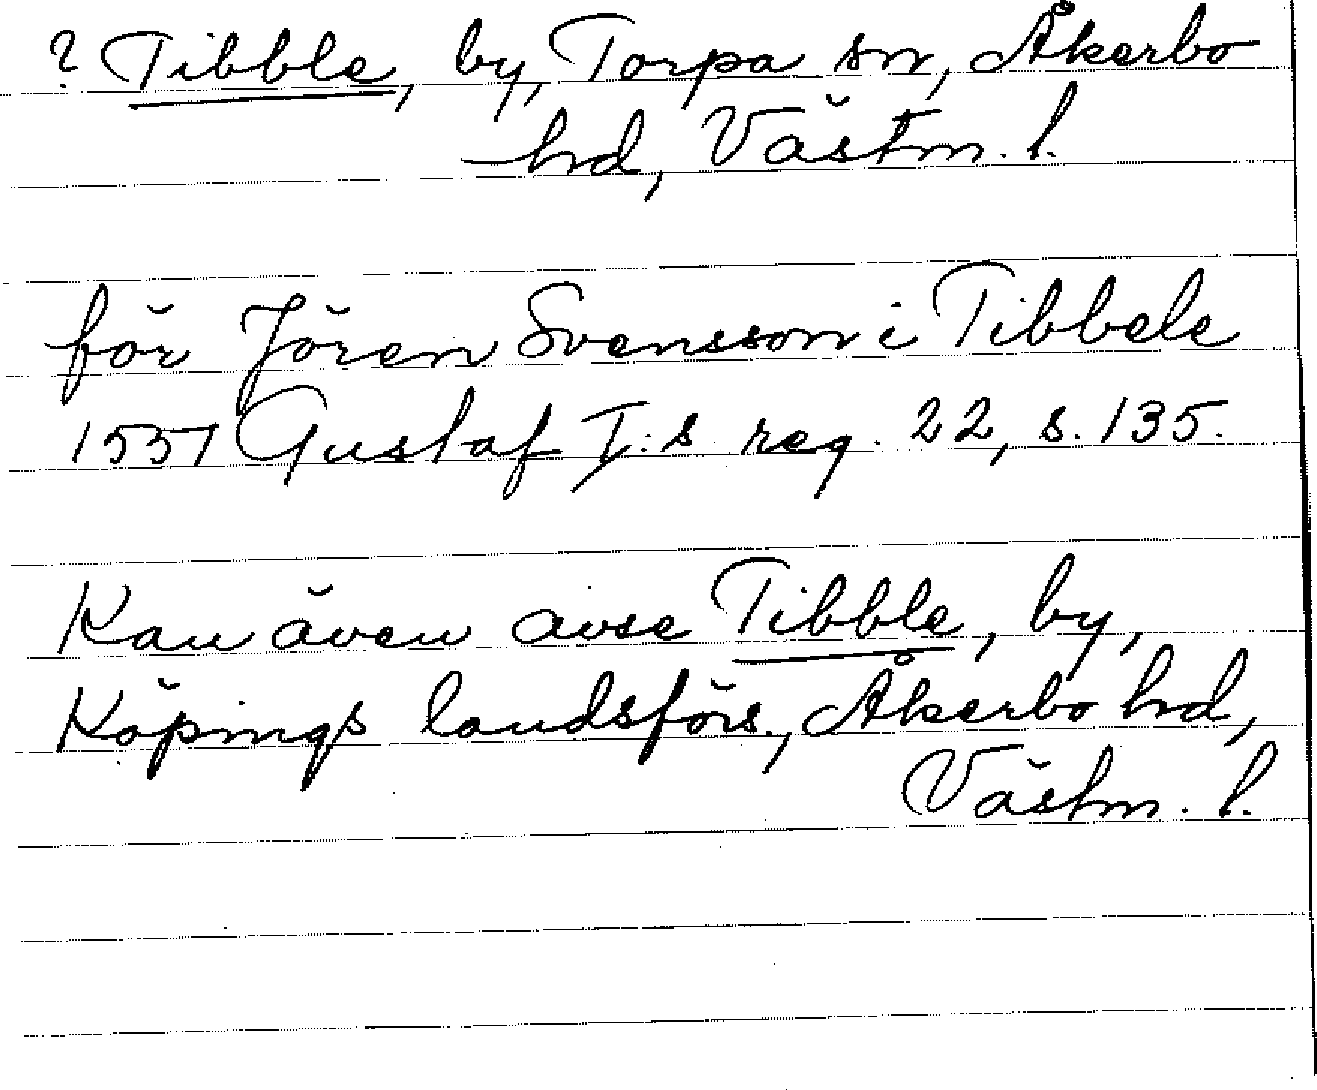 ? Tibble, by, Torpa sn, Åkerbo
hd, Västm. l.
för Jören Svensson i Tibbele
1551 Gustaf I:s reg. 22, s. 135.
Kan även avse Tibble, by,
Köpings landsförs., Åkerbo hd,
Västm. l.